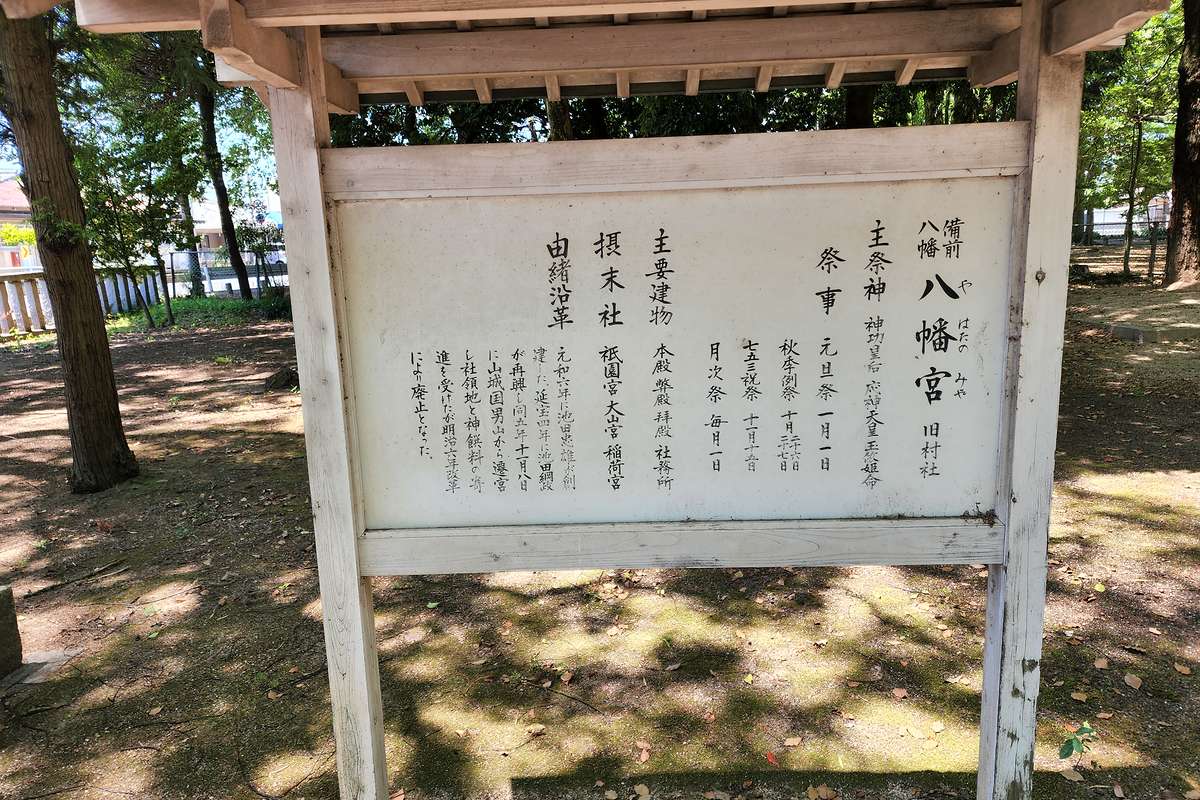 備前
八幡 八幡宮 旧村社
や はたの みや
主祭神 神功皇后 応神天皇 玉依姫命
祭事 元旦祭 一月一日
秋季例祭 十月二十六日 二十七日
七五三祝祭 十一月十五日
月次祭 毎月一日
主要建物 本殿 弊殿 拝殿 社務所
摂末社 祇園宮 大山宮 稲荷宮
由緒沿革 元和六年に池田忠雄が創
建した。延宝四年池田綱政
が再興し同五年十一月八日
に山城国男山から遷宮
し社領地と神饌料の寄
進を受けたが明治六年改革
により廃止となった。